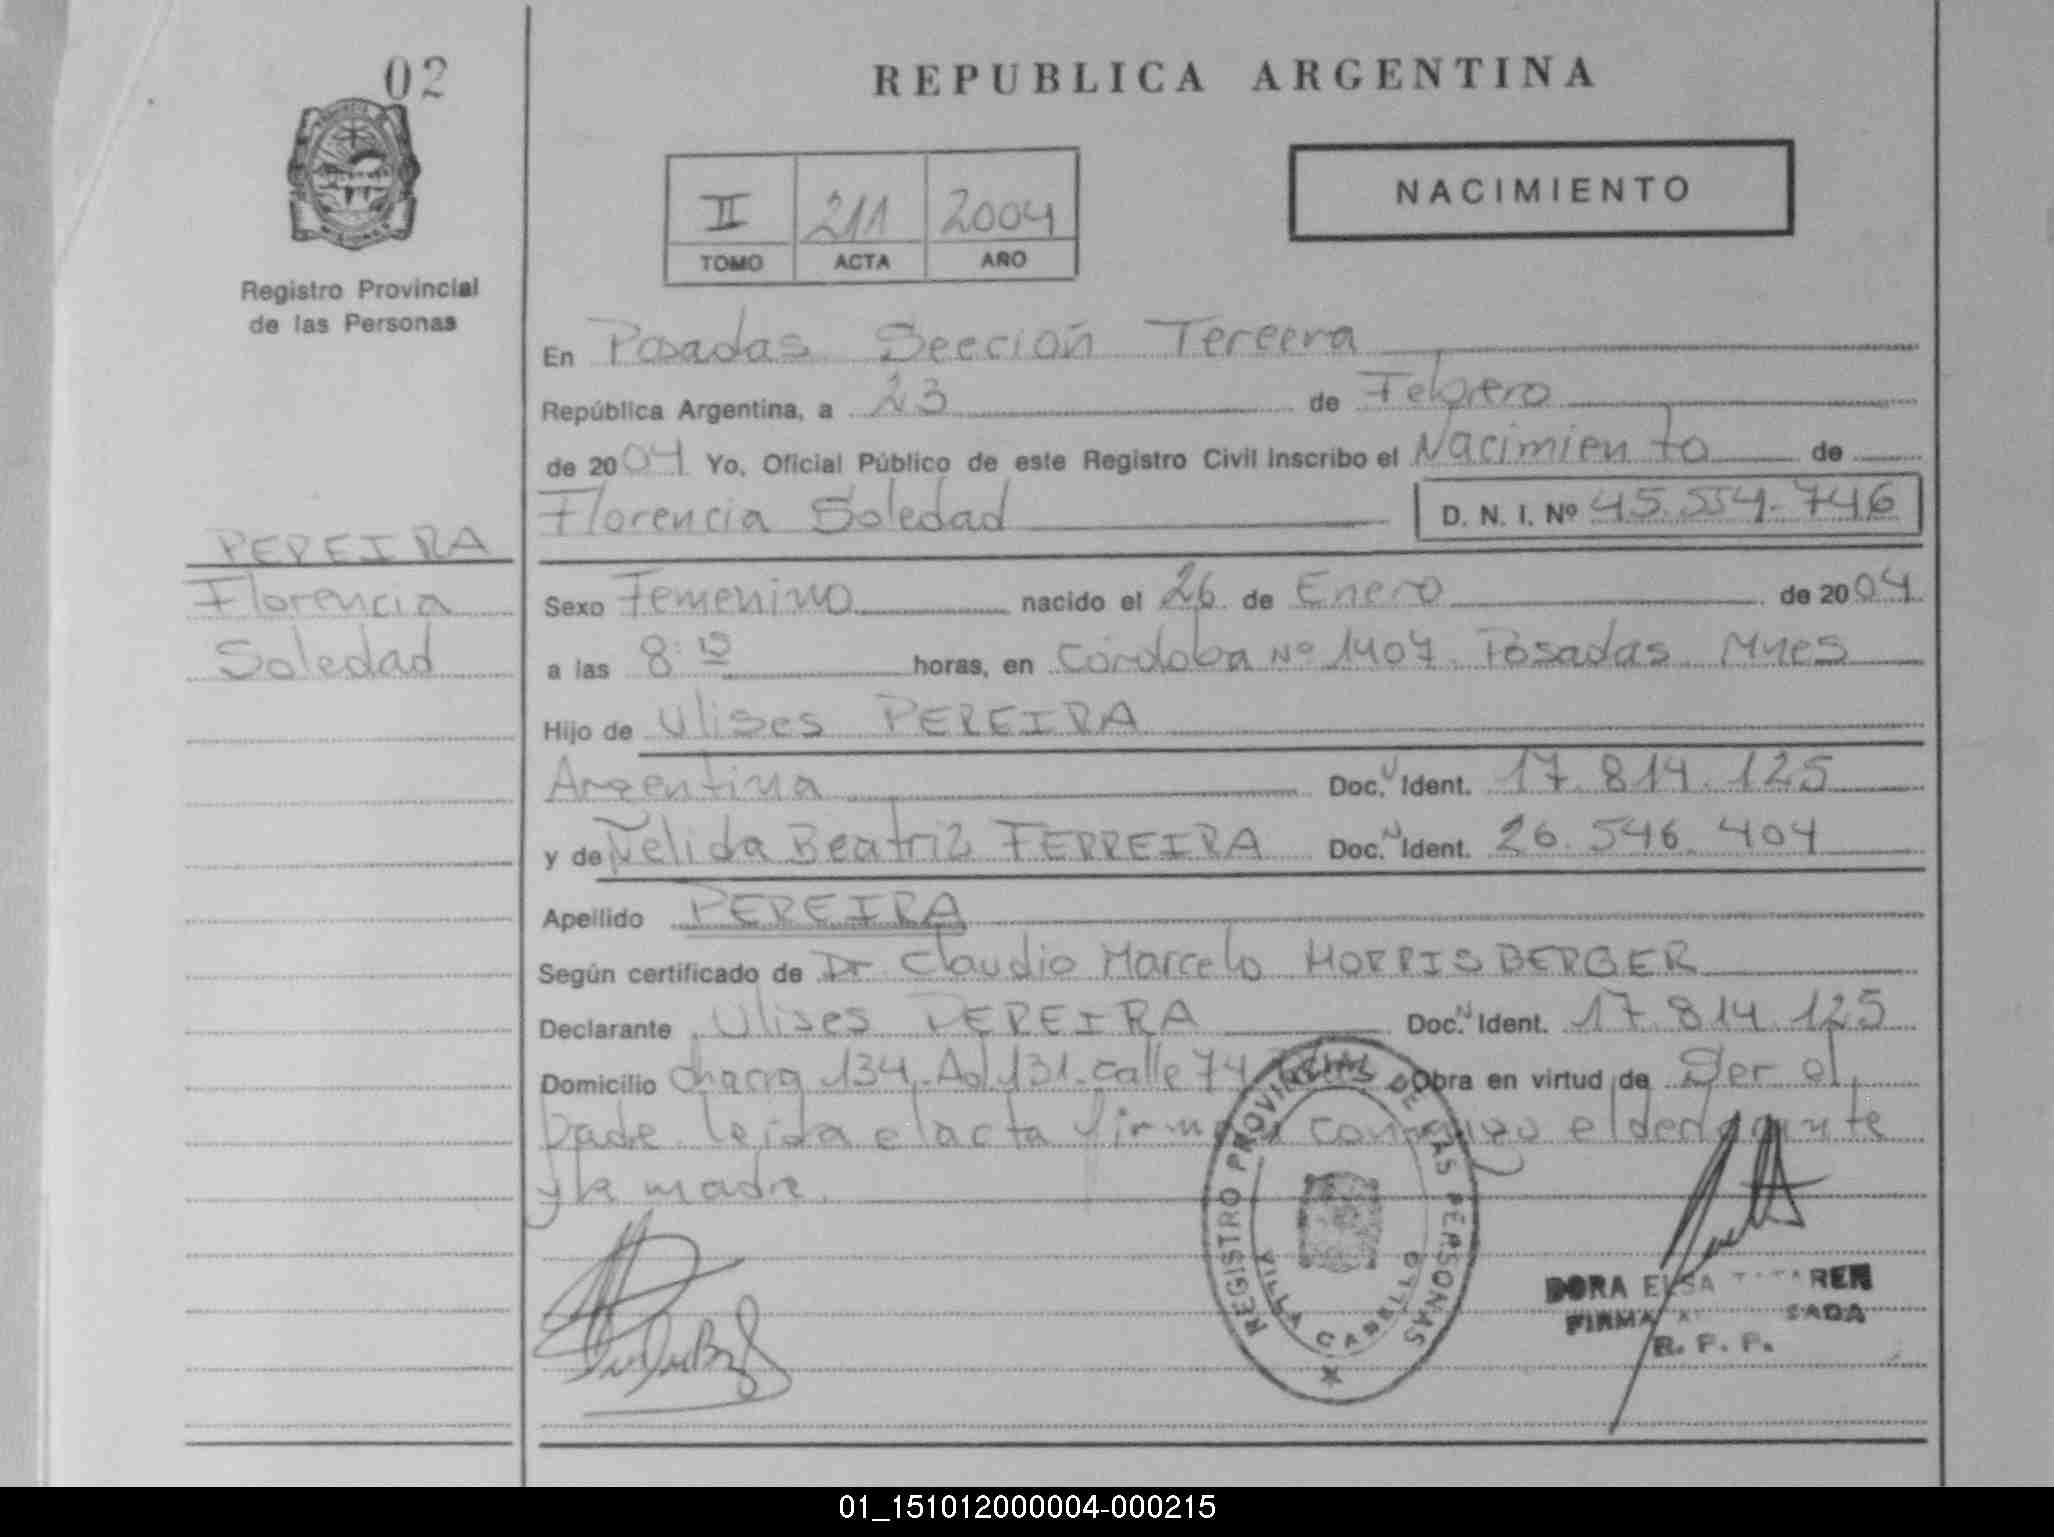 02
REPUBLICA ARGENTINA
NACIMIENTO
II 211 2004
TOMO ACTA AÑO
Registro Provincial
de las Personas
En Posadas Sección Tercera
República Argentina, a 23 de Febrero
de 2004 Yo, Oficial Público de este Registro Civil inscribo el Nacimiento de
Florencia Soledad D. N. I. Nº 45.554.746
PEREIRA
Florencia
Soledad
Sexo Femenino nacido el 26 de Enero de 2004
a las 8:15 horas, en Córdoba Nº 1407 Posadas Mnes
Hijo de Ulises PEREIRA
Argentina Doc. Ident. 17.814.125
y de Nelida Beatriz FERREIRA Doc. Ident. 26.546.404
Apellido PEREIRA
Según certificado de Dr Claudio Marcelo HORRISBERGER
Declarante Ulises PEREIRA Doc. Ident. 17.814.125
Domicilio chacra 134. Ad 131. calle 74 Obra en virtud de Ser el
Padre leida el acta conmigo el declarante
y la madre.
REGISTRO PROVINCIAL DE LAS PERSONAS
VILLA CABELLO
DORA ELSA
FIRMA
R. P. P.
01_151012000004-000215